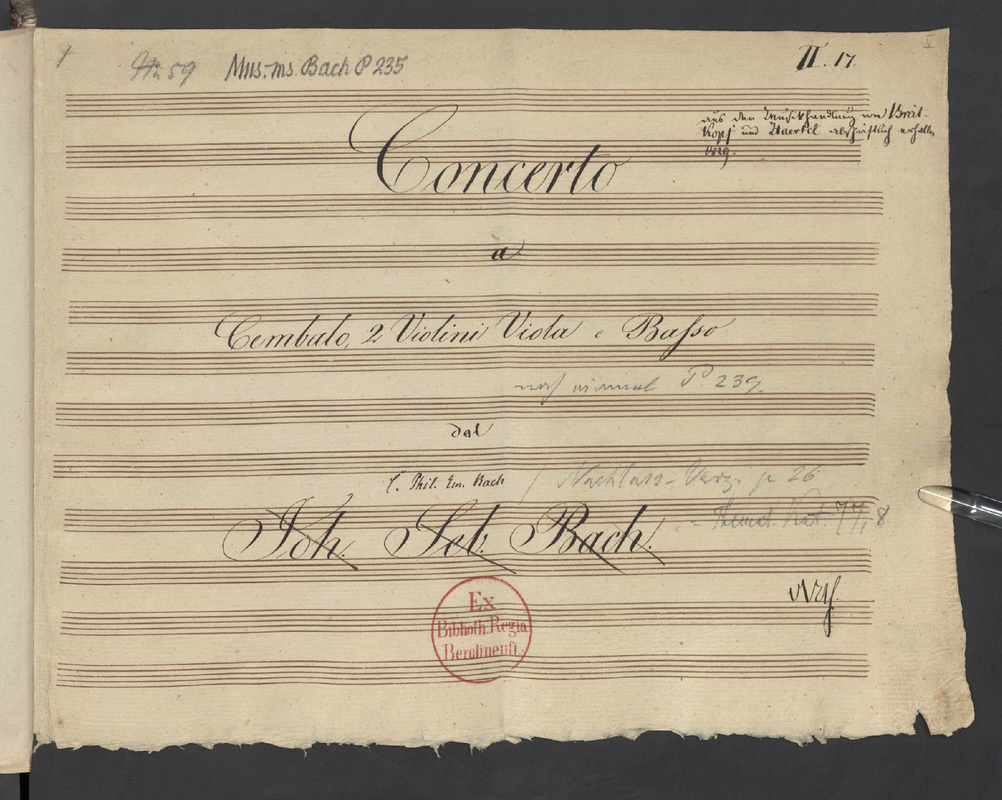 1
No 59 Mus. ms. Bach P 235
II. 17.
aus der Musikhandlung von Breit-
kopf und Haertel abschriftlich erhalten
1829.
Concerto
a
Cembalo, 2 Violini Viola e Basso
noch einmal P 239
dal
C. Phil. Em. Bach / Nachlass-Verz. p 26
Joh. Seb. Bach. - Themat. Kat. 77, 8
Ex
Biblioth. Regia
Berolinenſi.